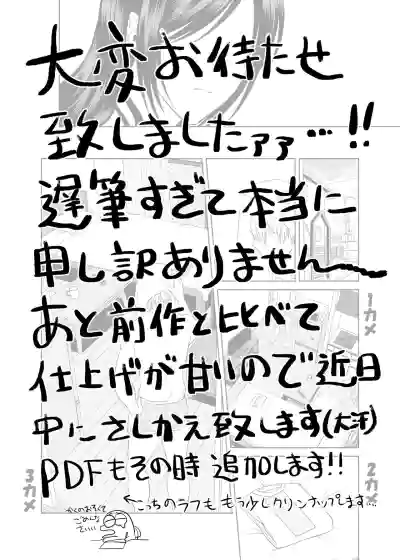 大変お待たせ
致しましたァァ…!!
遅筆すぎて本当に
申し訳ありません〜
あと前作と比べて
仕上げが甘いので近日
中にさしかえ致します(大汗)
PDFもその時追加します!!
←こっちのラフも もう少しクリンナップします…
かくのおそくて
ごめんな
さいい
1カメ
2カメ
3カメ